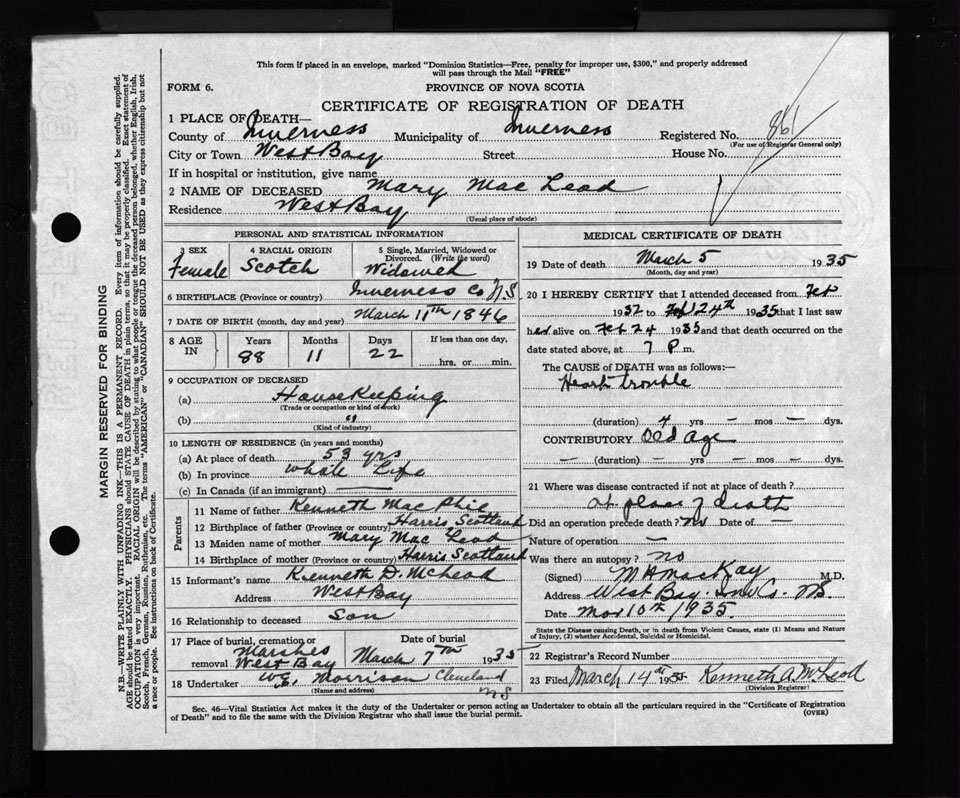 This form if placed in an envelope, marked "Dominion Statistics—Free, penalty for improper use, $300," and properly addressed
will pass through the Mail "FREE"
FORM 6.
PROVINCE OF NOVA SCOTIA
CERTIFICATE OF REGISTRATION OF DEATH
1 PLACE OF DEATH—
County of Inverness Municipality of Inverness Registered No. 861
(For use of Registrar General only)
City or Town West Bay Street House No.
If in hospital or institution, give name
2 NAME OF DECEASED Mary Mac Leod
Residence West Bay
(Usual place of abode)
PERSONAL AND STATISTICAL INFORMATION
3 SEX Female
4 RACIAL ORIGIN Scotch
5 Single, Married, Widowed or
Divorced. (Write the word)
Widowed
6 BIRTHPLACE (Province or country) Inverness Co N.S
7 DATE OF BIRTH (month, day and year) March 11th 1846
8 AGE IN
Years 88
Months 11
Days 22
If less than one day,
hrs. or min.
9 OCCUPATION OF DECEASED
(a) House Keeping
(Trade or occupation or kind of work)
(b) "
(Kind of industry)
10 LENGTH OF RESIDENCE (in years and months)
(a) At place of death 53 yrs
(b) In province whole Life
(c) In Canada (if an immigrant)
Parents
11 Name of father Kenneth Mac Phie
12 Birthplace of father (Province or country) Harris Scotland
13 Maiden name of mother Mary Mac Leod
14 Birthplace of mother (Province or country) Harris Scotland
15 Informant's name Kenneth D. McLeod
Address West Bay
16 Relationship to deceased Son
17 Place of burial, cremation or
removal Marshes West Bay
Date of burial
March 7th 1935
18 Undertaker W.E. Morrison Cleveland NS
(Name and address)
MEDICAL CERTIFICATE OF DEATH
19 Date of death March 5 1935
(Month, day and year)
20 I HEREBY CERTIFY that I attended deceased from Feb
1932 to Feb 24th 1935 that I last saw
her alive on Feb 24 1935 and that death occurred on the
date stated above, at 7 P m.
The CAUSE of DEATH was as follows:—
Heart trouble
(duration) 4 yrs — mos — dys.
CONTRIBUTORY Old Age
— (duration) — yrs — mos — dys.
21 Where was disease contracted if not at place of death?
at place of death
Did an operation precede death? No Date of —
Nature of operation —
Was there an autopsy? no
(Signed) M A MacKay M.D.
Address West Bay. Inv. Co. N.S.
Date Mar 10th 1935.
State the Disease causing Death, or in death from Violent Causes, state (1) Means and Nature
of Injury, (2) whether Accidental, Suicidal or Homicidal.
22 Registrar's Record Number
23 Filed March 14th 1935 Kenneth A. McLeod
(Division Registrar)
Sec. 46—Vital Statistics Act makes it the duty of the Undertaker or person acting as Undertaker to obtain all the particulars required in the "Certificate of Registration
of Death" and to file the same with the Division Registrar who shall issue the burial permit.
(OVER)
MARGIN RESERVED FOR BINDING
N.B.—WRITE PLAINLY WITH UNFADING INK—THIS IS A PERMANENT RECORD. Every item of information should be carefully supplied.
AGE should be stated EXACTLY. PHYSICIANS should STATE CAUSE OF DEATH in plain terms, so that it may be properly classified. Exact statement of
OCCUPATION is very important. RACIAL ORIGIN will be described by stating to what people or tongue the deceased person belonged, whether English, Irish,
Scotch, French, German, Russian, Ruthenian, etc. The terms "AMERICAN" or "CANADIAN" SHOULD NOT BE USED as they express citizenship but not
a race or people. See instructions on back of Certificate.